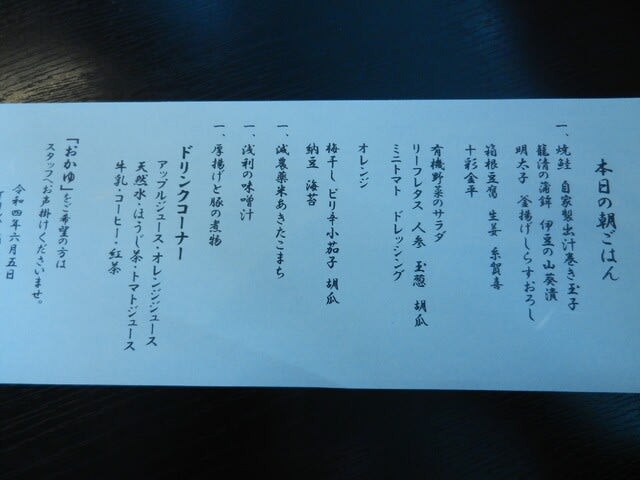 本日の朝ごはん
一、焼鮭 自家製出汁巻き玉子
籠清の蒲鉾 伊豆の山葵漬
明太子 釜揚げしらすおろし
箱根豆腐 生姜 糸賀喜
十彩金平
有機野菜のサラダ
リーフレタス 人参 玉葱 胡瓜
ミニトマト ドレッシング
オレンジ
梅干し ピリ辛小茄子 胡瓜
納豆 海苔
一、減農薬米あきたこまち
一、浅利の味噌汁
一、厚揚げと豚の煮物
ドリンクコーナー
アップルジュース・オレンジジュース
天然水・ほうじ茶・トマトジュース
牛乳・コーヒー・紅茶
「おかゆ」をご希望の方は
スタッフへお声掛けくださいませ。
令和四年六月五日